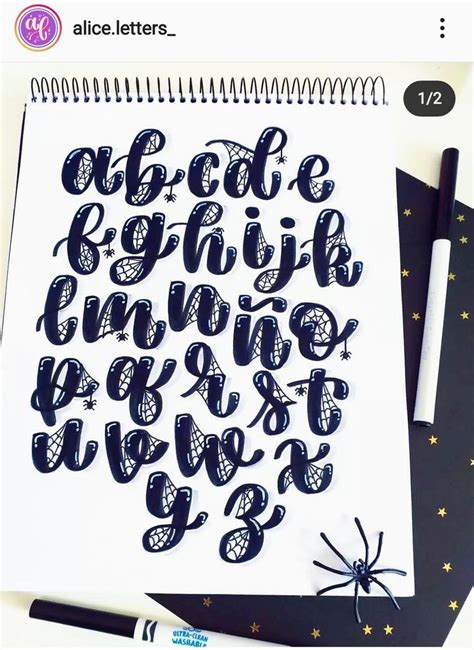 alice.letters_
1/2
abcde
fghijk
lmnño
pqrst
uvwx
yz
ULTRA-CLEAN
WASHABLE